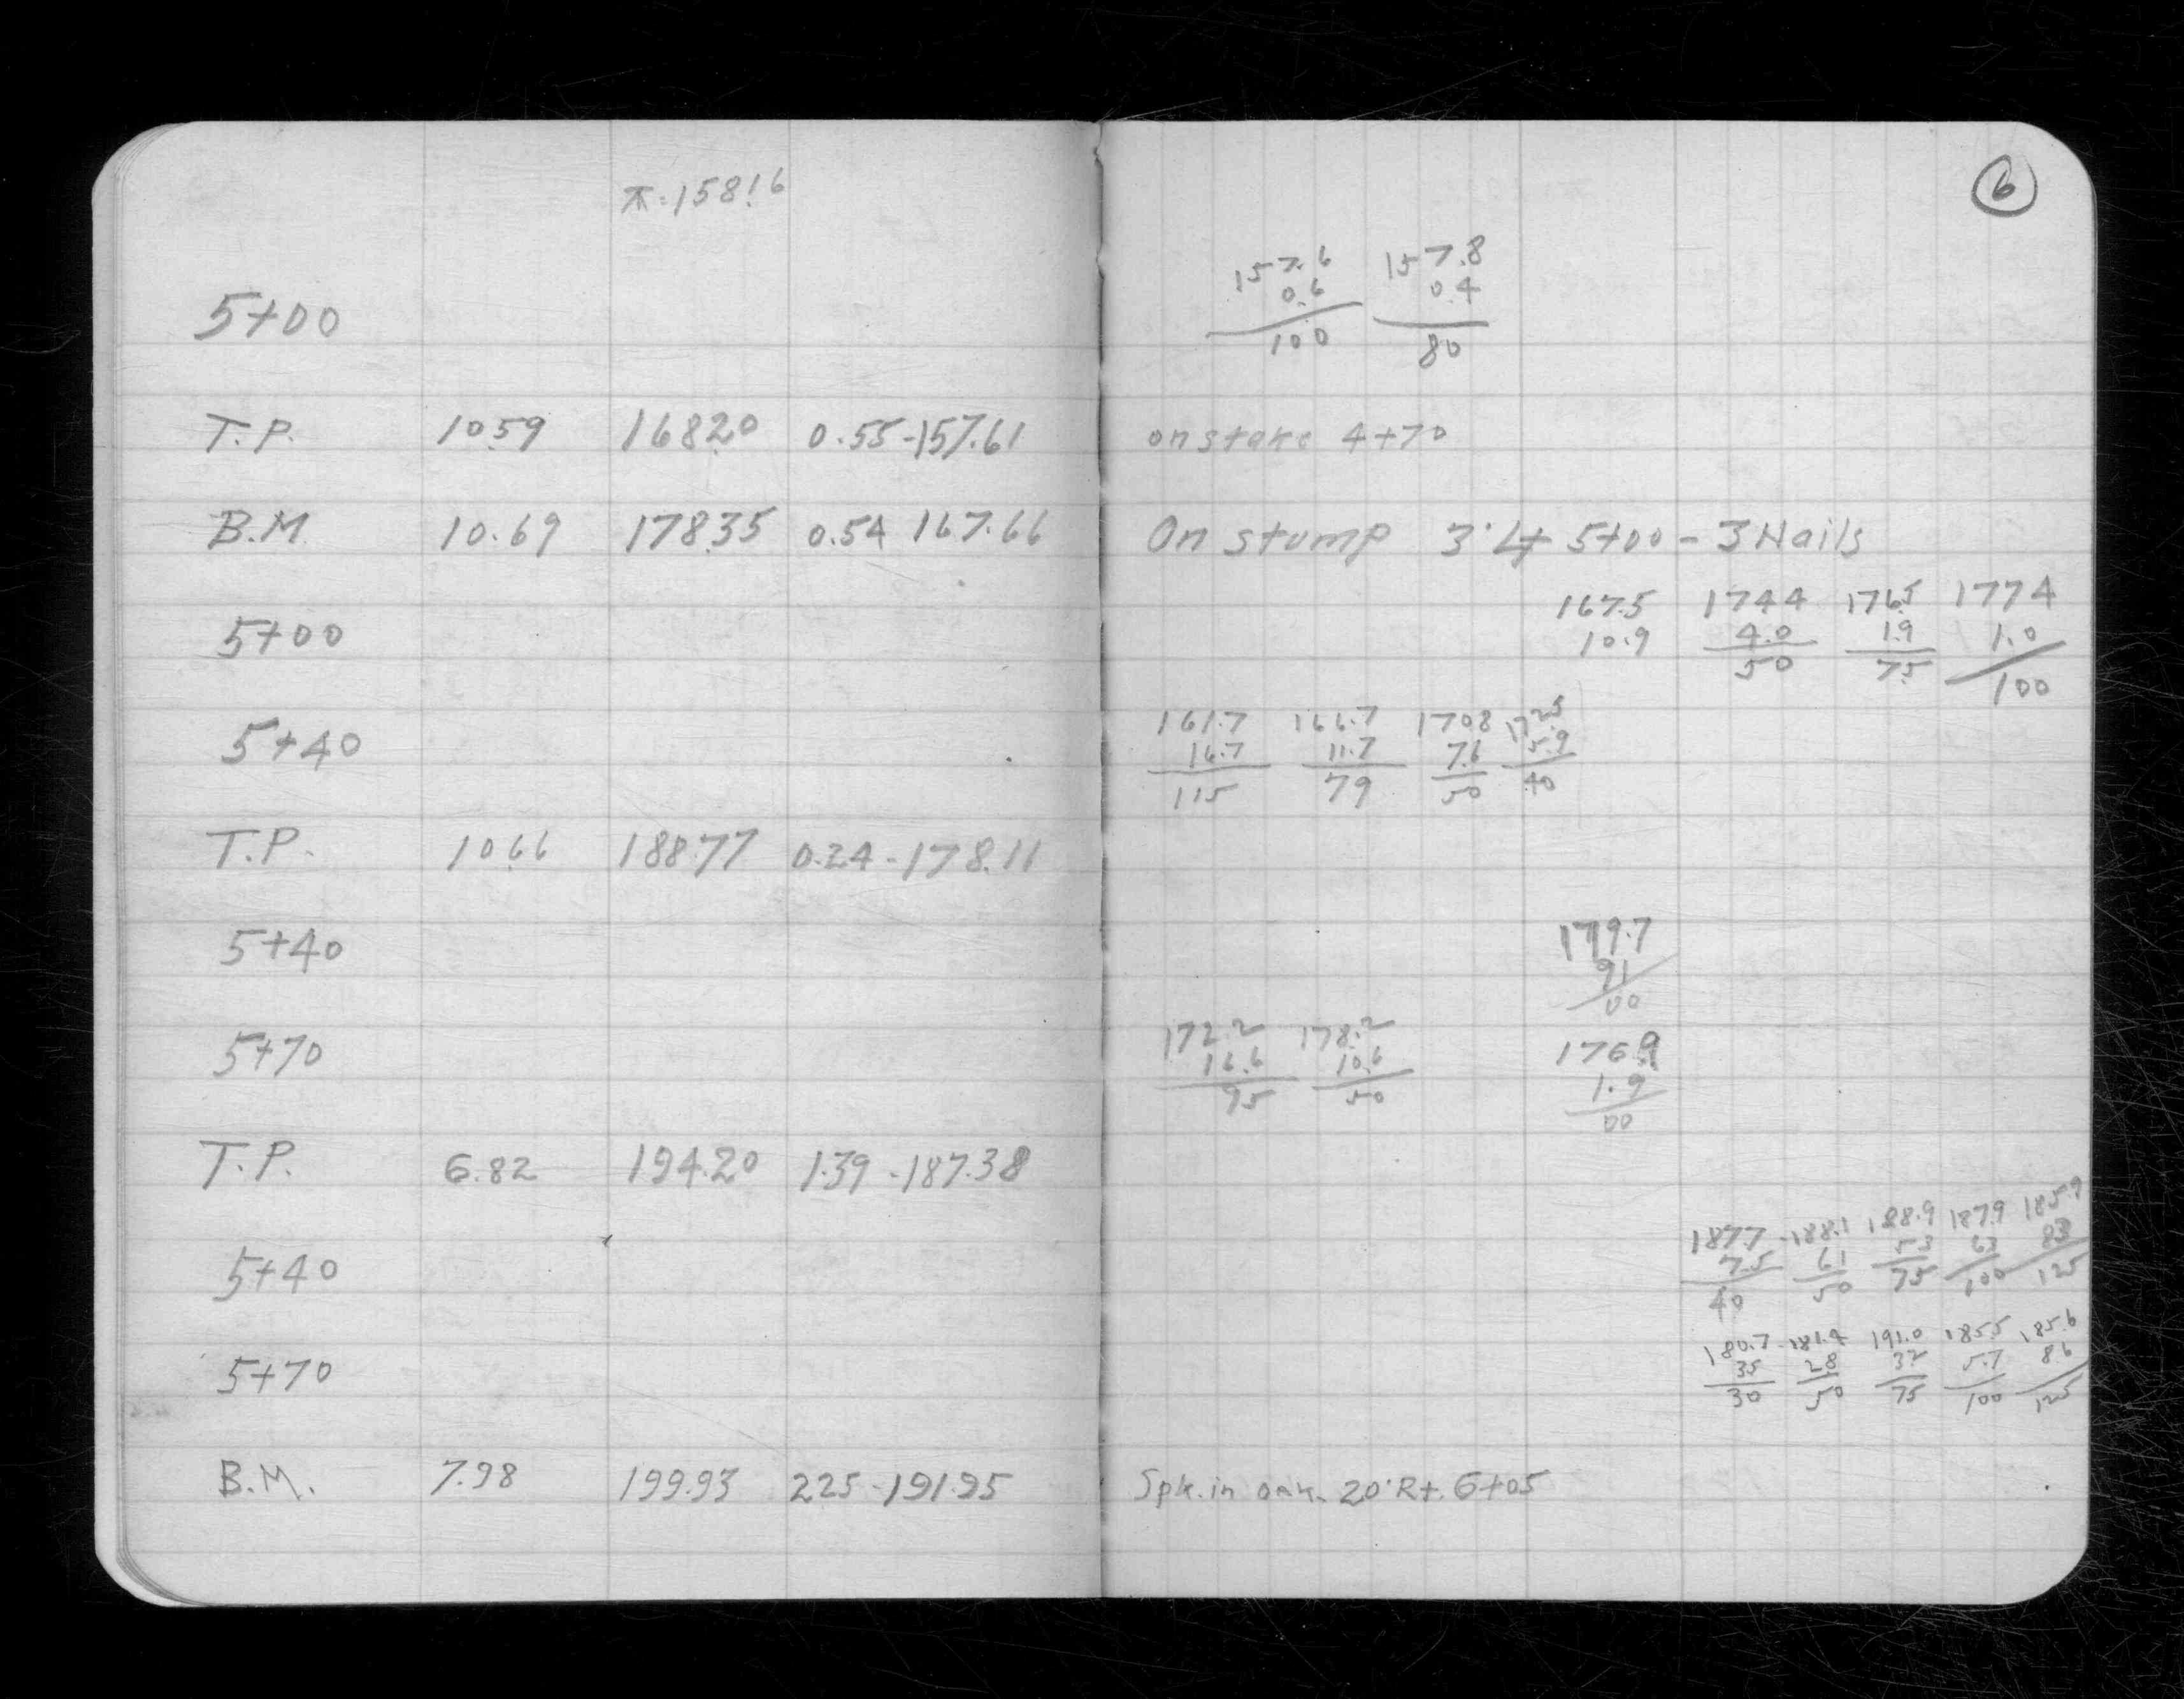 ⊼ = 158.16
6
157.6 157.8
0.6 0.4
5+00
100 80
T.P. 10.59 168.20 0.55 - 157.61 on stake 4+70
B.M. 10.69 178.35 0.54 167.66 On stump 3' Lt 5+00 - 3 Nails
167.5 174.4 176.5 177.4
5+00 10.9 4.0 1.9 1.0
50 75 100
161.7 166.7 170.8 172.5
5+40 16.7 11.7 7.6 5.9
115 79 50 40
T.P. 10.66 188.77 0.24 - 178.11
5+40 179.7
91
00
172.2 178.2 176.9
5+70 16.6 10.6 1.9
95 50 00
T.P. 6.82 194.20 1.39 - 187.38
187.7 188.1 188.9 187.9 185.9
5+40 7.5 61 53 63 83
40 50 75 100 125
180.7 191.0 185.5 185.6
5+70 35 28 32 5.7 86
30 50 75 100 125
B.M. 7.98 199.93 2.25 - 191.95 Spk. in oak. 20' Rt. 6+05